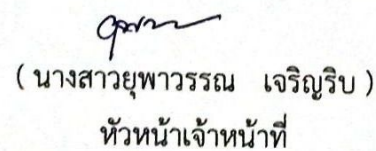 ( นางสาวยุพาวรรณ เจริญริบ )
หัวหน้าเจ้าหน้าที่